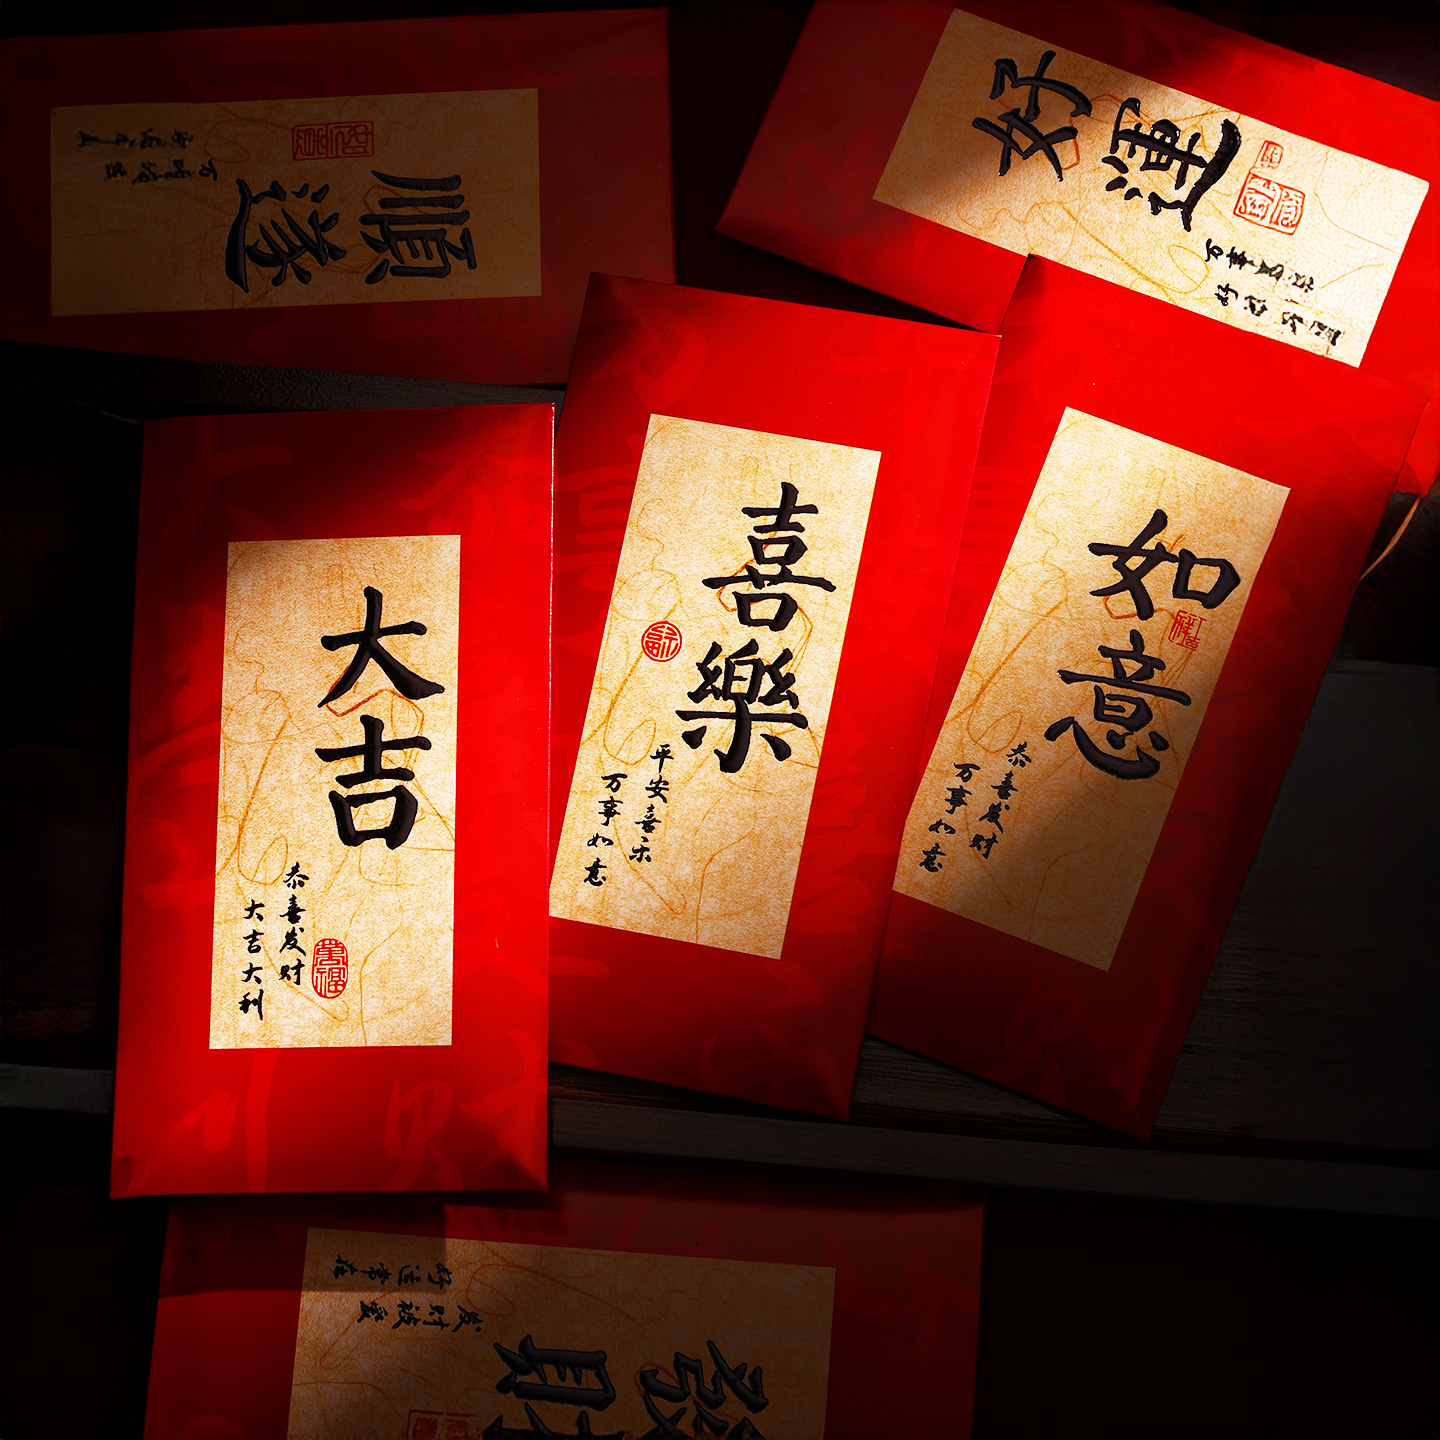 順遂
好運
大吉
恭喜发财
大吉大利
喜樂
平安喜乐
万事如意
如意
恭喜发财
万事如意
發財
好运常在